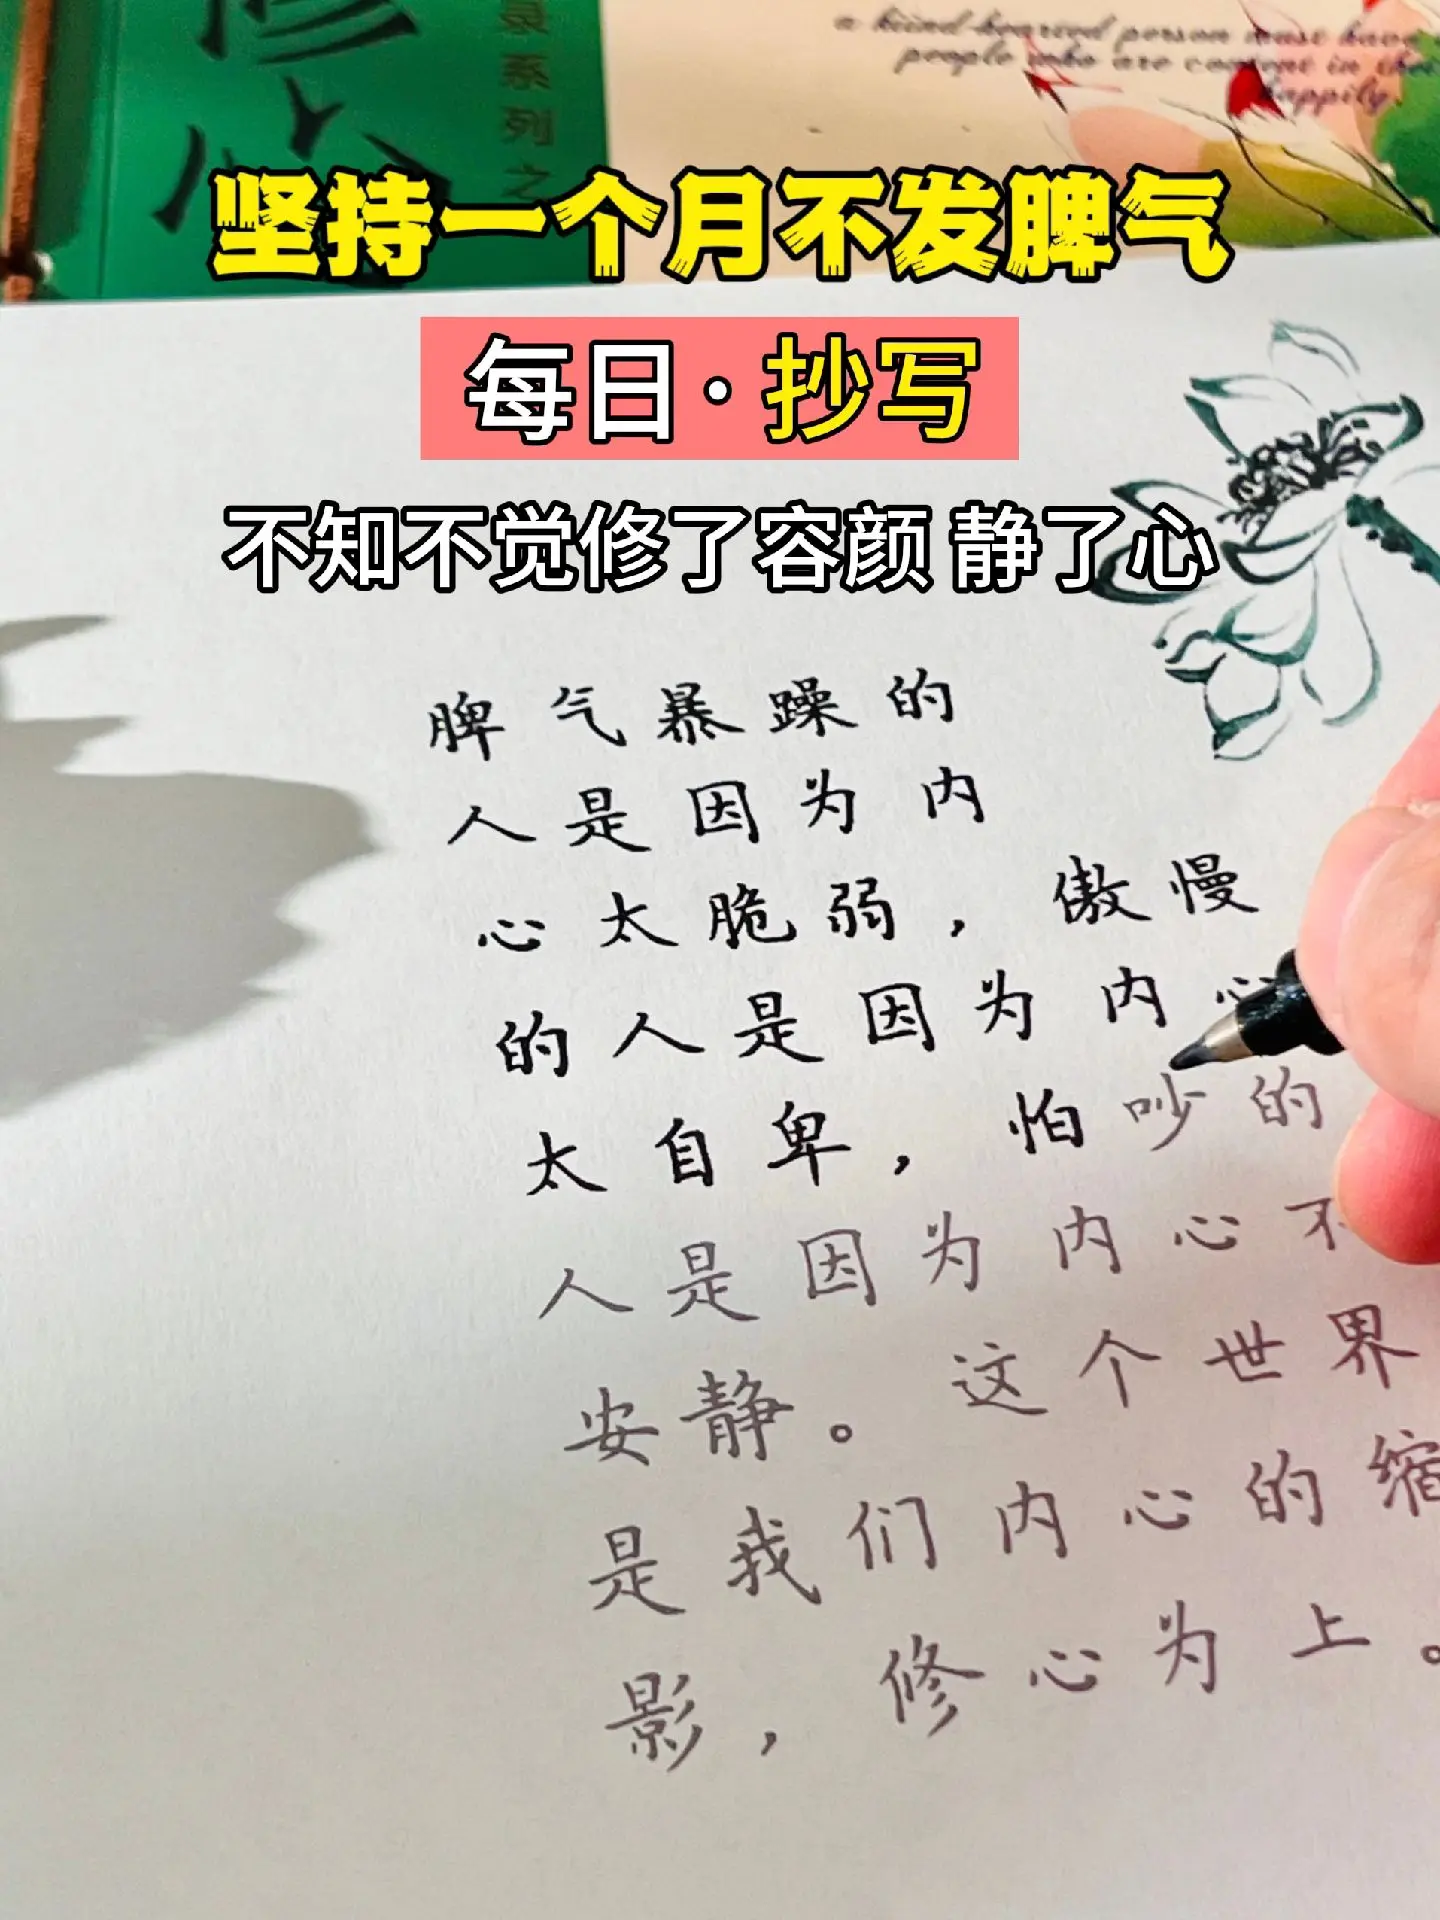 修心
录系列之
a kind-hearted person must have
people who are content in thei
happily.
坚持一个月不发脾气
每日·抄写
不知不觉修了容颜 静了心
脾气暴躁的
人是因为内
心太脆弱，傲慢
的人是因为内心
太自卑，怕吵的
人是因为内心不
安静。这个世界
是我们内心的缩
影，修心为上。